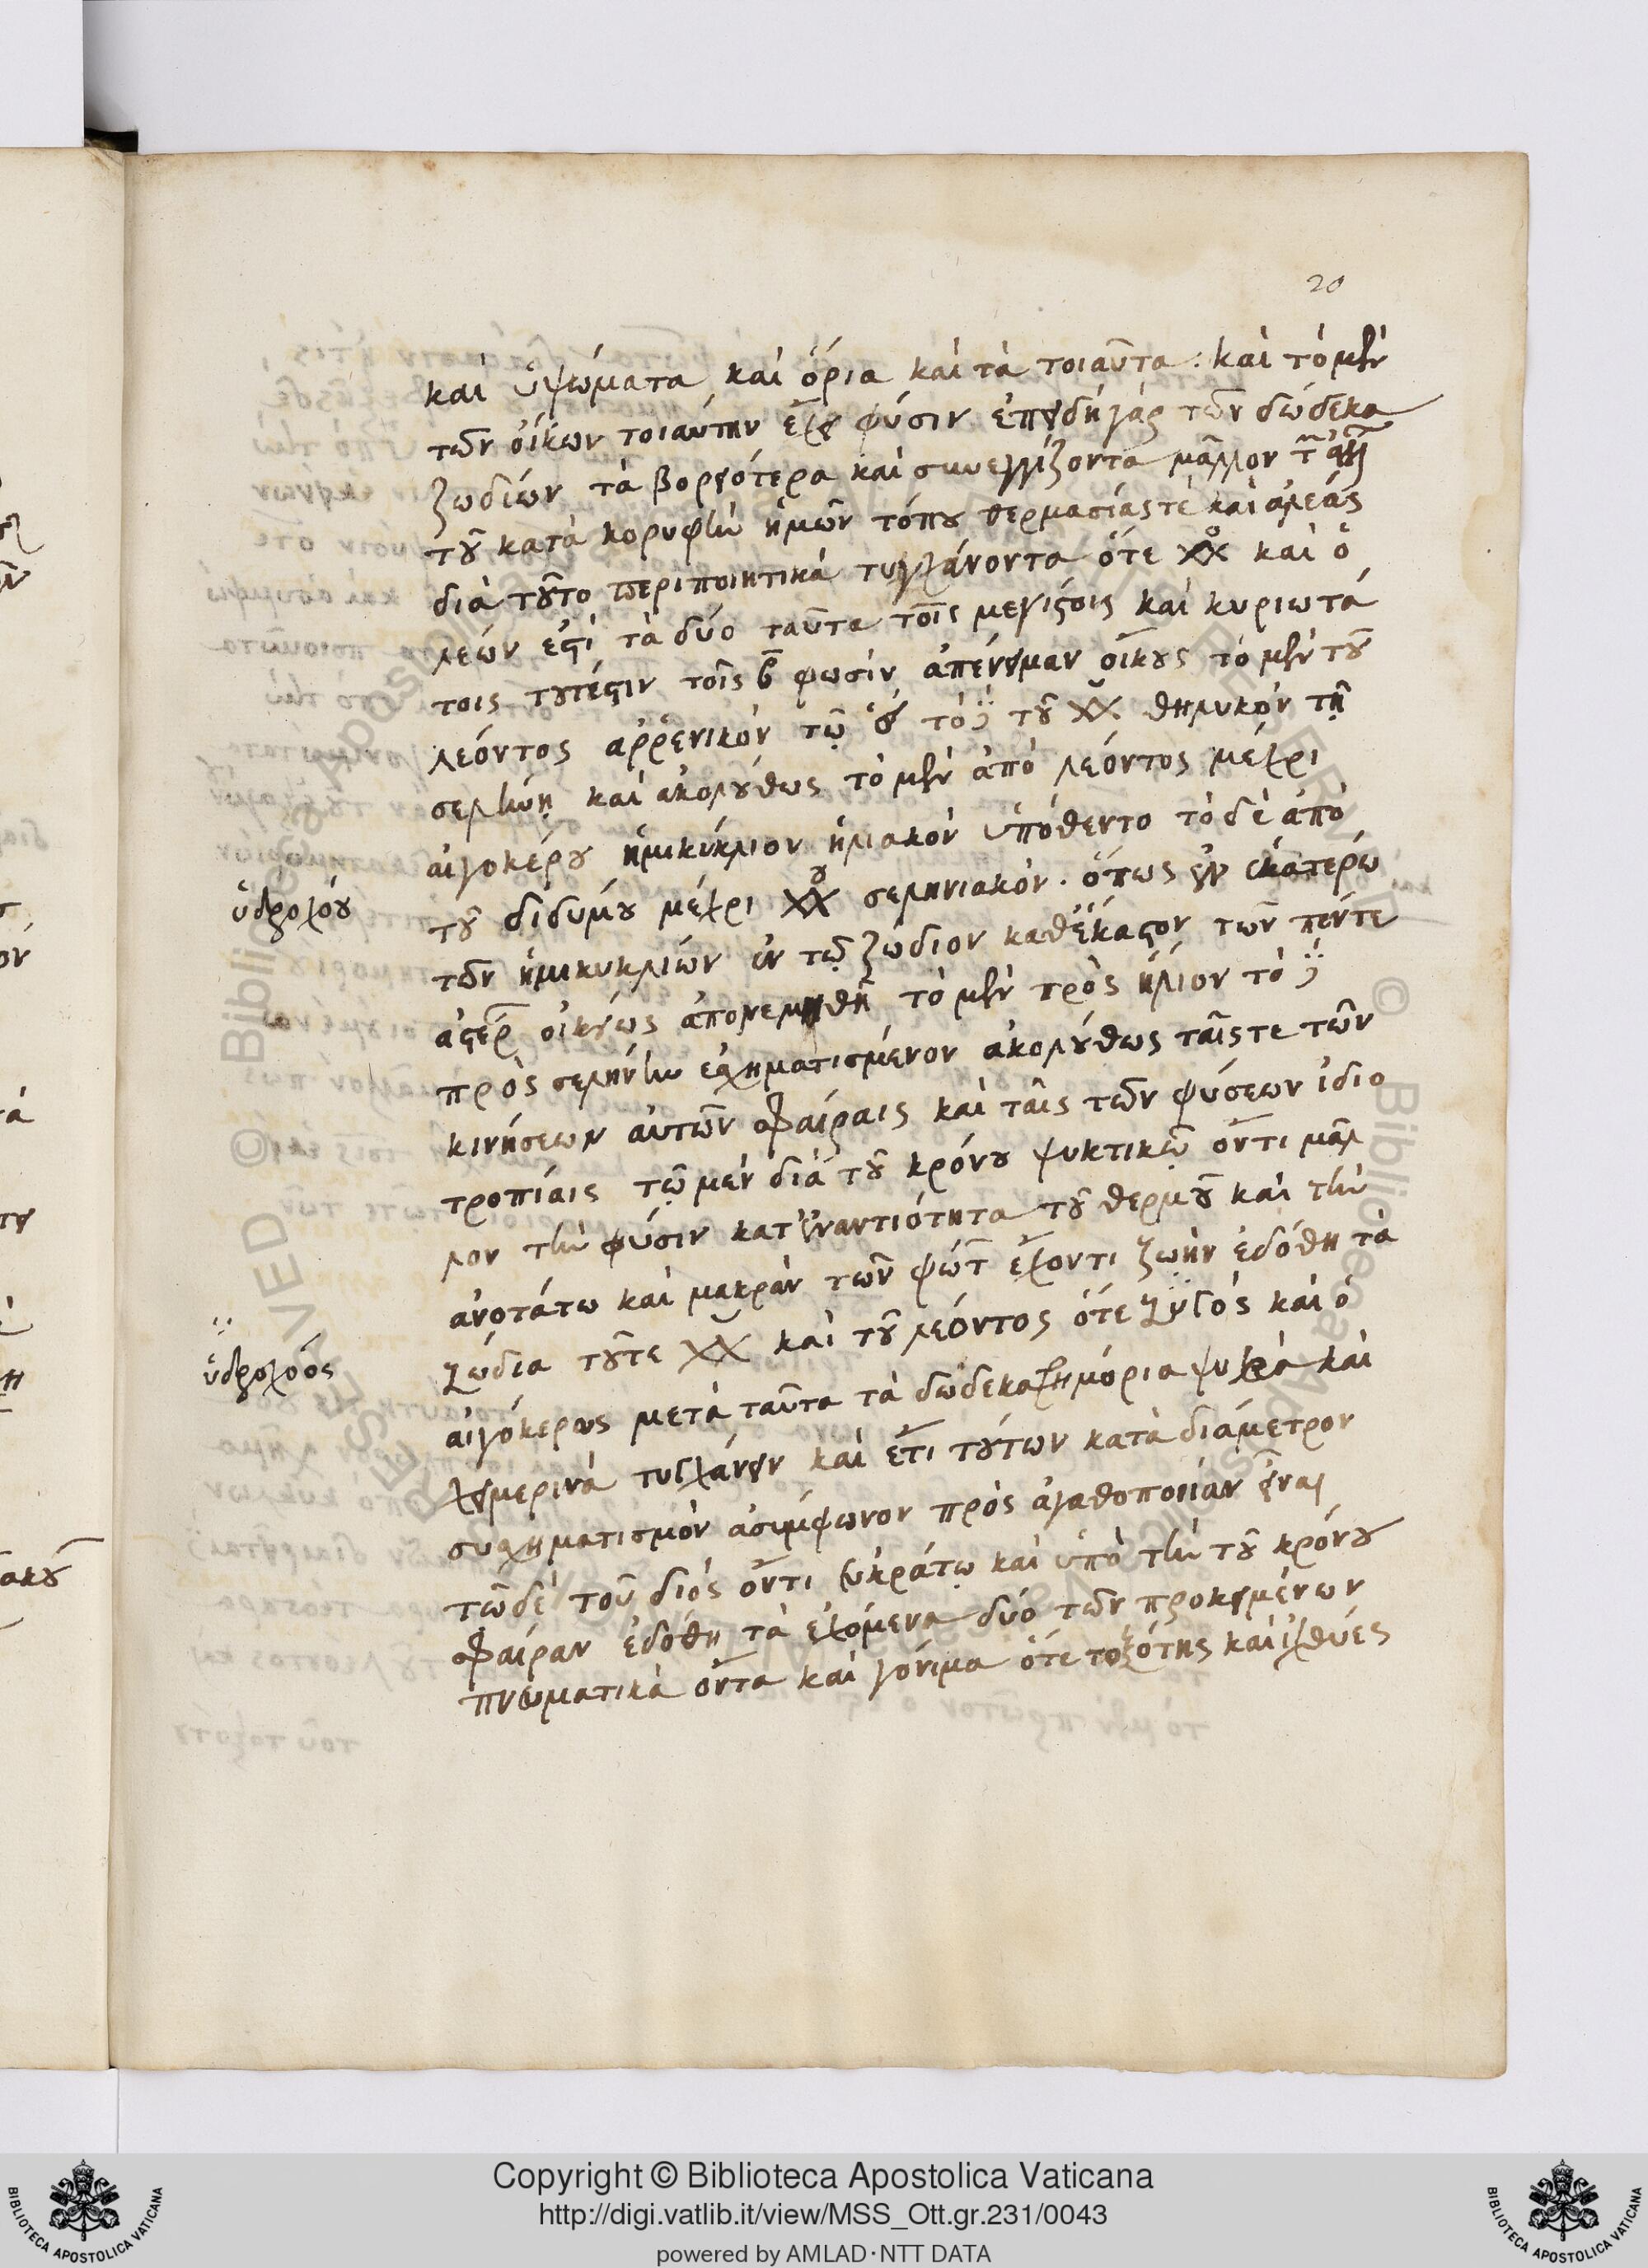 20
καὶ ὑψώματα καὶ ὅρια καὶ τὰ τοιαῦτα: καὶ τὸ μὲν
τῶν οἴκων τοιαύτην ἔχει φύσιν ἐπειδὴ γὰρ τῶν δώδεκα
ζωδίων τὰ βορειότερα καὶ συνεγγίζοντα μᾶλλον τῶν
τοῦ κατὰ κορυφὴν ἡμῶν τόπου θερμασίας τὲ καὶ ἀλέας
διὰ τοῦτο περιποιητικὰ τυγχάνοντα ὅτε XX καὶ ὁ
λέων ἐστὶ τὰ δύο ταῦτα τοῖς μεγίστοις καὶ κυριωτά
τοις τουτέστιν τοῖς β φωσὶν ἀπένειμαν οἴκους τὸ μὲν τοῦ
λέοντος ἀρρενικὸν τῷ τὸ τοῦ XX θηλυκὸν τῇ
σελήνῃ καὶ ἀκολούθως τὸ μὲν ἀπὸ λέοντος μέχρι
αἰγοκέρου ἡμικύκλιον ἡλιακὸν ὑπόθεντο τὸ δὲ ἀπὸ
ὑδροχόου
τοῦ διδύμου μέχρι XXου σεληνιακόν. ὅπως ἐν ἑκατερώ
τῶν ἡμικυκλίων ἐν τῷ ζώδιον καθ' ἕκαστον τῶν πέντε
ἀστέρ οἰκείως ἀπονεμηθῇ τὸ μὲν πρὸς ἥλιον τὸ
πρὸς σελήνην ἐσχηματισμένον ἀκολούθως ταῖς τε τῶν
κινήσεων αὐτῶν σφαίραις καὶ ταῖς τῶν φύσεων ἰδιο
τροπίαις τῷ μὲν διὰ τοῦ κρόνου ψυκτικῷ ὄντι μᾶλ
λον τὴν φύσιν κατ' ἐναντιότητα τοῦ θερμοῦ καὶ τὴν
ἀνοτάτω καὶ μακρὰν τῶν φώτ ἔχοντι ζωὴν ἐδόθη τὰ
ζώδια τοῦτε XX καὶ τοῦ λέοντος ὅτε ζυγὸς καὶ ὁ
ὑδροχόος
αἰγόκερως μετὰ ταῦτα τὰ δωδεκατημόρια ψυχρὰ καὶ
χειμερινὰ τυγχάνειν καὶ ἔτι τούτων κατὰ διάμετρον
συσχηματισμὸν ἀσύμφωνον πρὸς ἀγαθοποιίαν εἶναι
τῶ δὲ τοῦ διὸς ὄντι εὐκράτῳ καὶ ὑπὸ τὴν τοῦ κρόνου
σφαίραν ἐδόθη τὰ ἐχόμενα δύο τῶν προκειμένων
πνευματικὰ ὄντα καὶ γόνιμα ὅτε τοξότης καὶ ἰχθύες
Copyright © Biblioteca Apostolica Vaticana
http://digi.vatlib.it/view/MSS_Ott.gr.231/0043
powered by AMLAD·NTT DATA